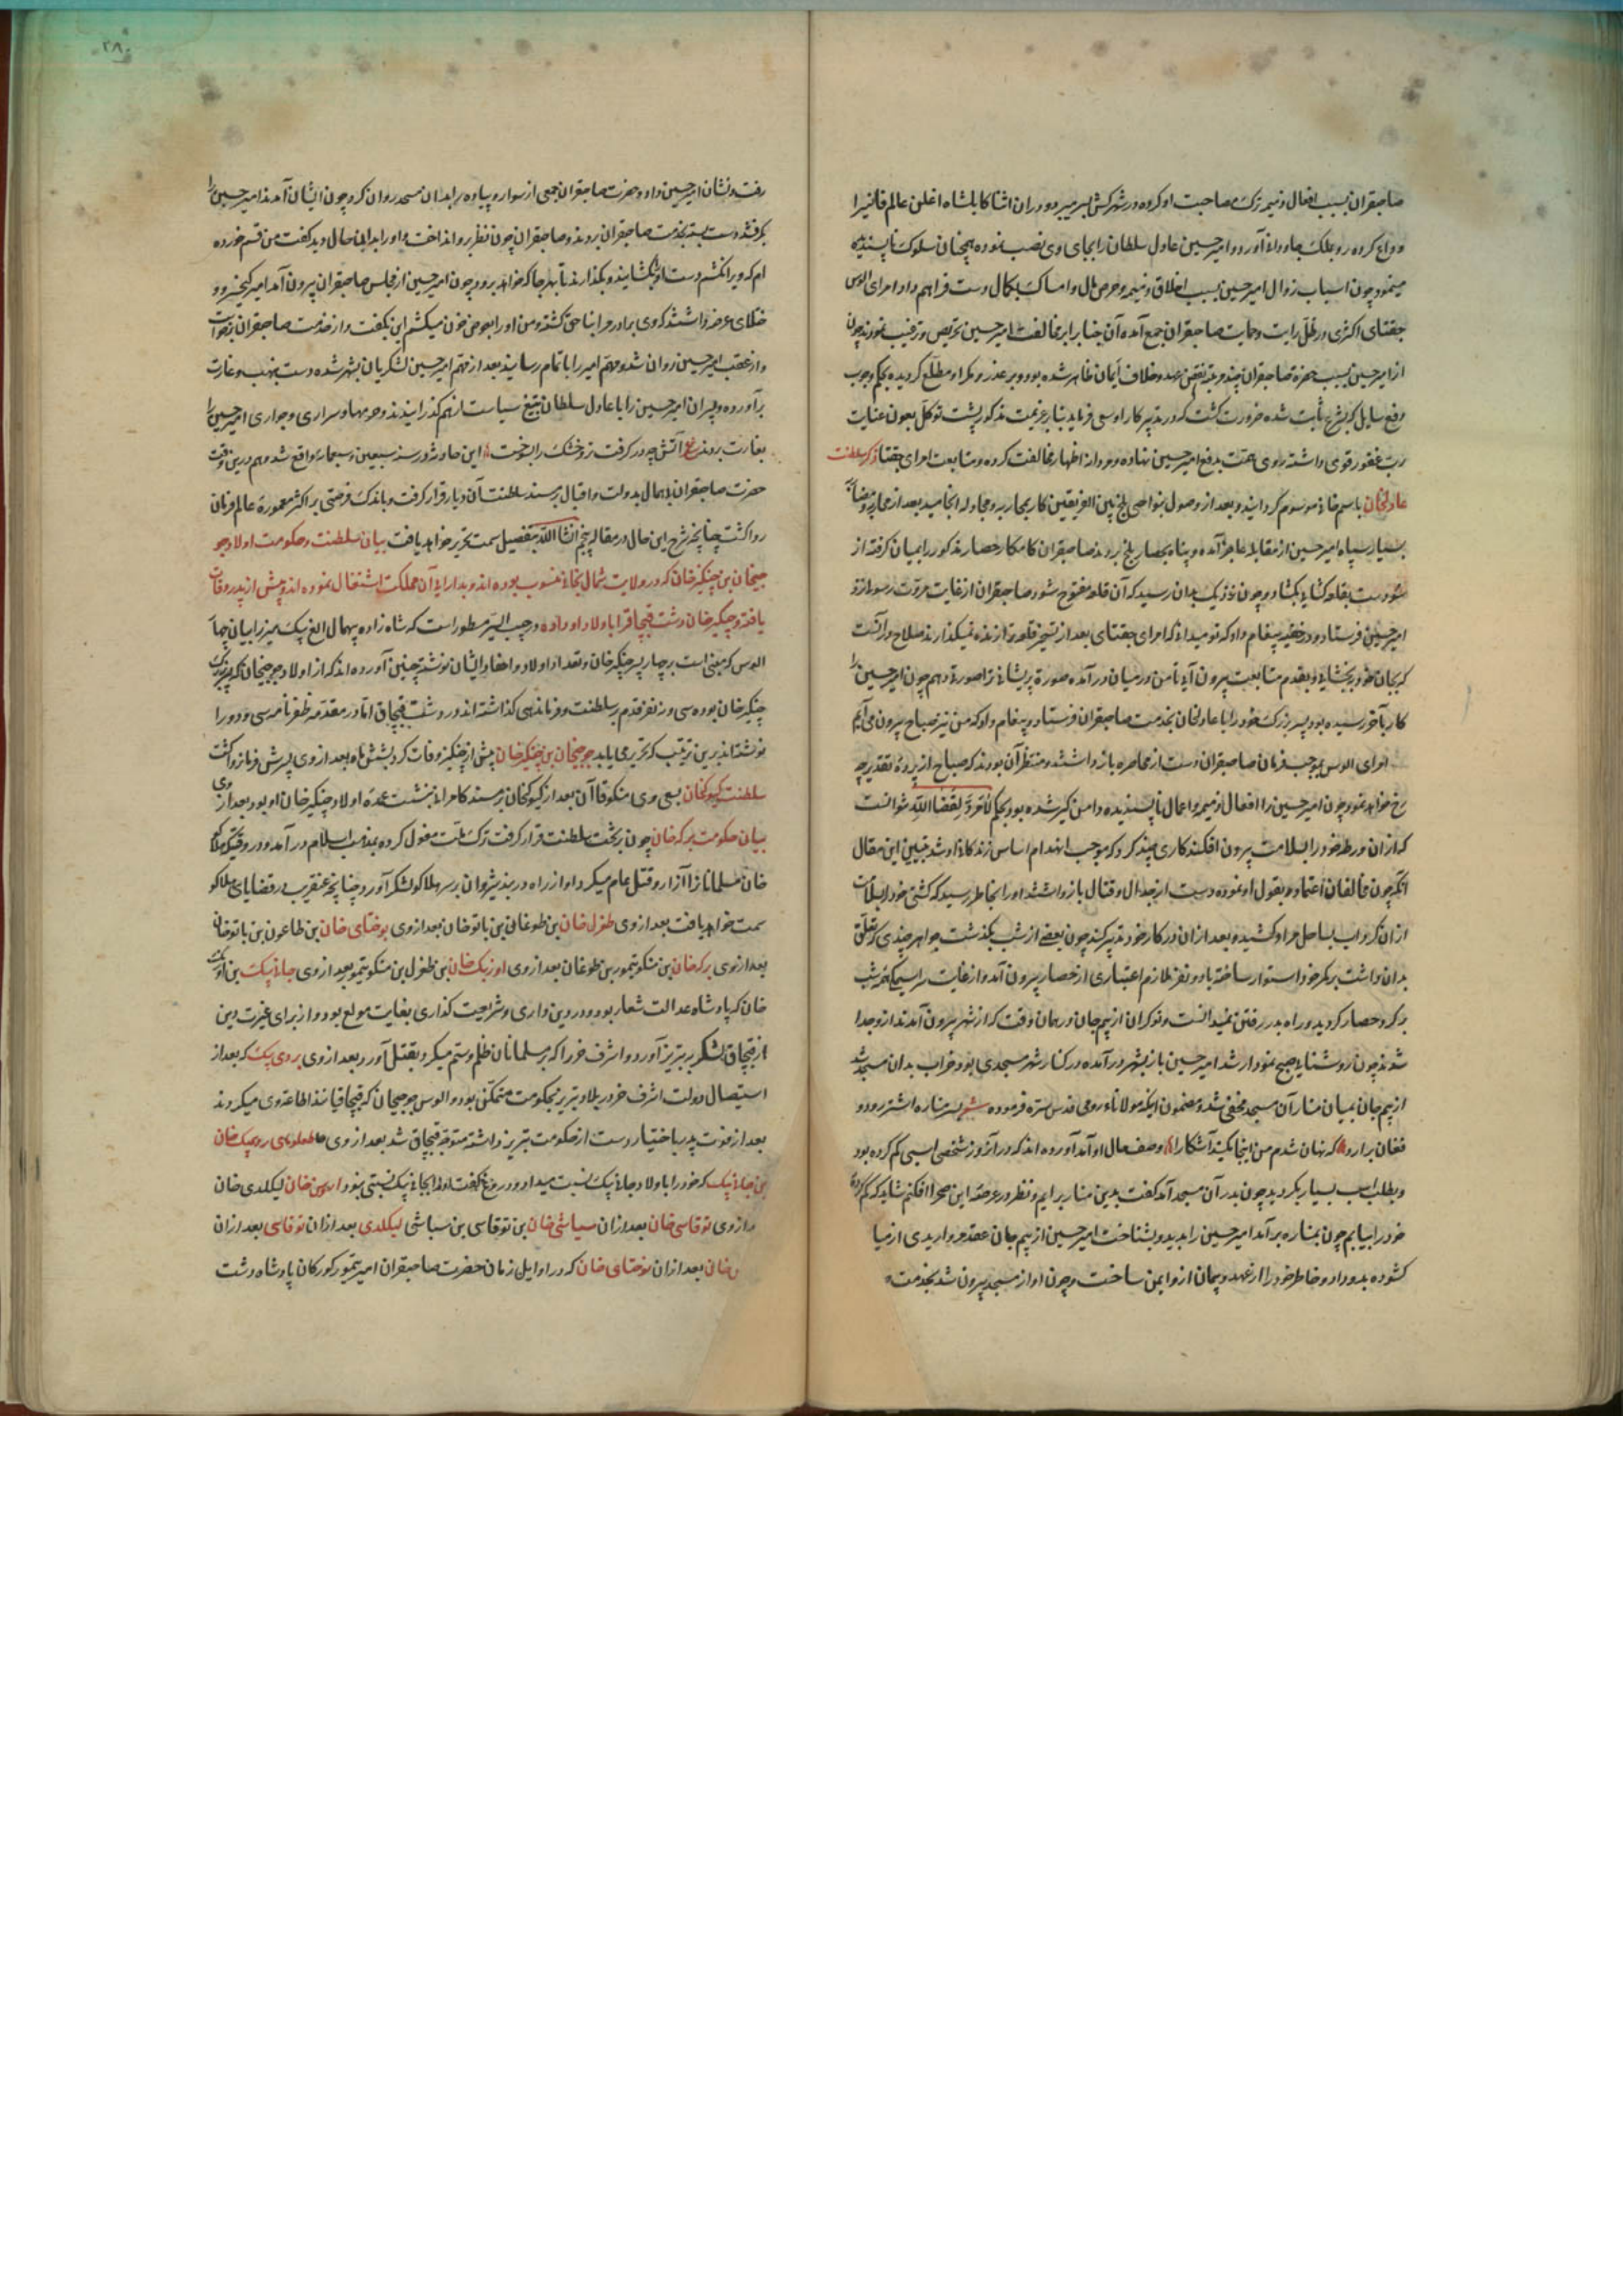 صاحبقران بسبب افعال ذمیمه ترک مصاحبت او کرده در شهر کش بسر میبرد و در ان اثنا کابلشاه اغلن عالم فانیرا
وداع کرده رو بملک جاودانی آورد و امیر حسین عادل سلطان را بجای وی نصب نموده همچنان سلوک ناپسندیده
مینمود چون اسباب زوال امیر حسین بسبب اخلاق ذمیمه و حرص مال و امساک بکمال دست فراهم داد امرای الوس
جغتای اکثری در ظل رایت و حمایت صاحبقران جمع آمده آن جناب را بر مخالفت امیر حسین تحریص و ترغیب نمودند چون
از امیر حسین بسبب حضرة صاحبقران چند مرتبه نقض عهد و خلاف ایمان ظاهر شده بود و بر غدر و مکر او مطلع کردیده بحکم وجوب
دفع صایل که بشرع ثابت شده ضرورت کشت که در تدبیر کار او سعی فرماید بنابر عزیمت مذکور پشت توکل بعون عنایت
رب غفور قوی داشته روی همت بدفع امیر حسین نهاده و جودانه اظهار مخالفت کرده و متابعت امرای جغتا ذکر سلطنت
عادلخان باسم خانی موسوم کردانید و بعد از وصول بنواحی بلخ بین الفریقین کار بمحاربه و مجادله انجامید بعد از محاربه
بسیار سپاه امیر حسین از مقابله عاجز آمده و پناه بحصار بلخ بردند صاحبقران کامکار حصار مذکور را بمیان کرفته از
دست بقلعه کشایی بکشاد و چون نزدیک بدان رسید که آن قلعه مفتوح شود صاحبقران از غایت مروت رسولی نزد
امیر حسین فرستاد و در خفیه پیغام داد که تو میدانی که امرای جغتای بعد از تسخیر قلعه ترا زنده نمیکذارند صلاح در آنست
که بجان خود ببخشایی و بقدم متابعت بیرون آیی تا من در میان در آمده صورة پریشانی ترا صورتی دهم چون امیر حسین را
کار بآخر رسیده بود پسر بزرک خود را با عادلخان بخدمت صاحبقران فرستاد و پیغام داد که من نیز صباح بیرون می آیم
امرای الوس بموجب فرمان صاحبقران دست از محاصره باز داشتند و منتظر آن بودند که صباح از پرده تقدیر چه
رخ خواهد نمود چون امیر حسین را افعال ذمیمه و اعمال ناپسندیده دامن کیر شده بود بحکم لامرد لقضاء الله نتوانست
که از ان ورطه خود را بسلامت بیرون افکند کاری چند کرد که موجب انهدام اساس زندکانی او شد تبیین این مقال
آنکه چون مخالفان اعتماد بقول او نموده دست از جدال و قتال باز داشتند او را بخاطر رسید که کشتی خود را بسلامت
از ان کرداب بساحل مراد کشیده بعد از ان در کار خود تدبیر کند چون بعضی از شب بگذشت جواهر چندی که تعلق
بدان داشت بر کمر خود استوار ساخته با دو نفر ملازم اعتباری از حصار بیرون آمد و از غایت سراسیمگی همه شب
بر کرد حصار کردید و راه بدر رفتن نمیدانست و نوکران از بیم جان در همان وقت که از شهر بیرون آمدند از و جدا
شدند چون روشنایی صبح نمودار شد امیر حسین باز بشهر در آمده در کنار شهر مسجدی بود خراب بدان مسجد شد
از بیم جان بمیان منار آن مسجد مخفی شد و مضمون اینکه مولانای رومی قدس سره فرموده شعر بسر مناره اشتر رود و
فغان برارد که نهان شدم من اینجا مکنید آشکارا وصف حال او آمد آورده اند که در آنروز شخصی اسبی کم کرده بود
و بطلب اسب بسیار بکردید چون بدر آن مسجد آمد کفت بدین منار برایم و نظر در عرصه این صحرا افکنم شاید که کم کرده
خود را بیابم چون بمناره بر آمد امیر حسین را بدید و بشناخت امیر حسین از بیم جان عقد مرواریدی از میا
کشوده بدو داد و خاطر خود را از عهد و پیمان ازو ایمن ساخت و چون او از مسجد بیرون شد بخدمت
۲۸۰
رفت و نشان امیر حسین داد و حضرت صاحبقران جمعی از سوار و پیاده را بدان مسجد روان کرد چون ایشان آمدند امیر حسین را
بکرفتند و دست بسته بخدمت صاحبقران بردند و صاحبقران چون نظر برو انداخت و او را بدان حال دید کفت من قسم خورده
ام که ویرا نکشم دست او بکشایند و بکذارند تا بهر جا که خواهد برود چون امیر حسین از مجلس صاحبقران بیرون آمد امیر کیخسرو و
ختلانی عرضه داشتند که وی برادر مرا بناحق کشته و من او را بعوض خون میکشم این بکفت و از خدمت صاحبقران برخواست
و از عقب امیر حسین روان شد و مهم امیر را باتمام رسانید بعد از مهم امیر حسین لشکریان بشهر شده دست بنهب و غارت
برآورده و پسران امیر حسین را با عادل سلطان بتیغ سیاست از هم کذرانیدند و حرمها و سراری و جواری امیر حسین را
بغارت بردند ع آتش چو در کرفت تر و خشک را بسوخت این حادثه در سنه سبعین و سبعمائه واقع شد و هم درین وقت
حضرت صاحبقران بدولت و اقبال بر مسند سلطنت آن دیار قرار کرفت و باندک فرصتی بر اکثر معمورة عالم فرمان
روا کشت چنانچه شرح این حال در مقاله پنجم انشا الله بتفصیل سمت تحریر خواهد یافت بیان سلطنت و حکومت اولاد جو
جیخان بن چنکیز خان که در ولایت شمال بخانی منسوب بوده اند و بدارایی آن مملکت اشتغال نموده اند و پیش از پدر وفات
یافته و چنکیز خان دشت قبچاق را باولاد او داده در حبیب السیر مسطور است که شاه زاده بیهمال الغ بیک میرزا بیان چها
الوس که مبنی است بر چهار پسر چنکیز خان و تعداد اولاد و احفاد ایشان نوشته چنین آورده اند که از اولاد جوجیخان که پسر بزرک
چنکیز خان بوده سی و نه نفر قدم بر سلطنت و فرماندهی کذاشته اند در دشت قبچاق اما در مقدمه ظفرنامه سی و دو را
نوشته اند بدین ترتیب که تحریر می یابد جوجیخان بن چنکیز خان پیش از چنکیز وفات کرد بشش ماه بعد از وی پسرش فرمانروا کشت
سلطنت کیوکخان بسعی وی منکوقاآن بعد از کیوکخان بر مسند کامرانی بنشست عمده اولاد چنکیز خان او بود بعد از وی
بیان حکومت برکه خان چون بر تخت سلطنت قرار کرفت ترک ملت مغول کرده بمذهب اسلام در آمد و در وقتیکه هلاکو
خان مسلمانان را آزار و قتل عام میکرد او از راه دربند شروان بر سر هلاکو لشکر آورد چنانچه عنقریب در قضایای هلاکو
سمت خواهد یافت بعد از وی طغرل خان بن طوغانی بن باتو خان بعد از وی بوختای خان بن طاعون بن باتو خان
بعد از وی برکه خان بن منکو تیمور بن طوغان بعد از وی اوزبک خان بن طغرل بن منکو تیمور بعد از وی جانی بیک بن اوزبک
خان که پادشاه عدالت شعار بود و در دین داری و شریعت کذاری بغایت مولع بود و از برای غیرت دین
از قبچاق لشکر بتبریز آورد و اشرف خر را که بر مسلمانان ظلم و ستم میکرد بقتل آورد بعد از وی بردی بیک که بعد از
استیصال دولت اشرف خر در بلاد تبریز بحکومت متمکن بود و الوس جوجیخان که قبچاقیانند اطاعت وی میکردند
بعد از فوت پدر باختیار دست از حکومت تبریز داشته متوجه قبچاق شد بعد از وی
بن جانی بیک که خود را باولاد جانی بیک نسبت میداد و دروغ میکفت او را بجانی بیک نسبتی نبود خان لیکلدی خان
از وی توقاسی خان بعد از ان سیاشی خان بن توقاسی بن سیاشی لیکلدی بعد از ان توقاسی بعد از ان
خان بعد از ان توختای خان که در اوایل زمان حضرت صاحبقران امیر تیمور کورکان پادشاه دشت